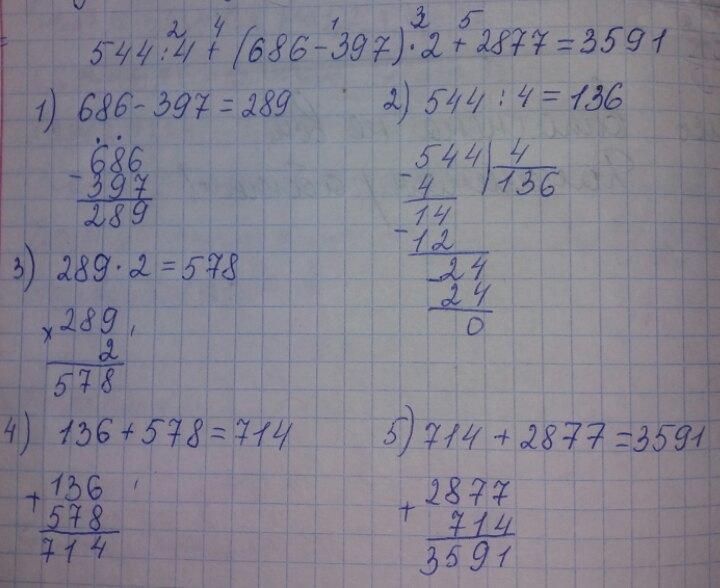 2 4 1 3 5
544:4+(686-397)·2+2877=3591
1) 686-397=289
686
- 397
289
2) 544:4=136
544 | 4
- 4 136
14
- 12
24
- 24
0
3) 289·2=578
× 289
2
578
4) 136+578=714
+ 136
578
714
5) 714+2877=3591
+ 2877
714
3591